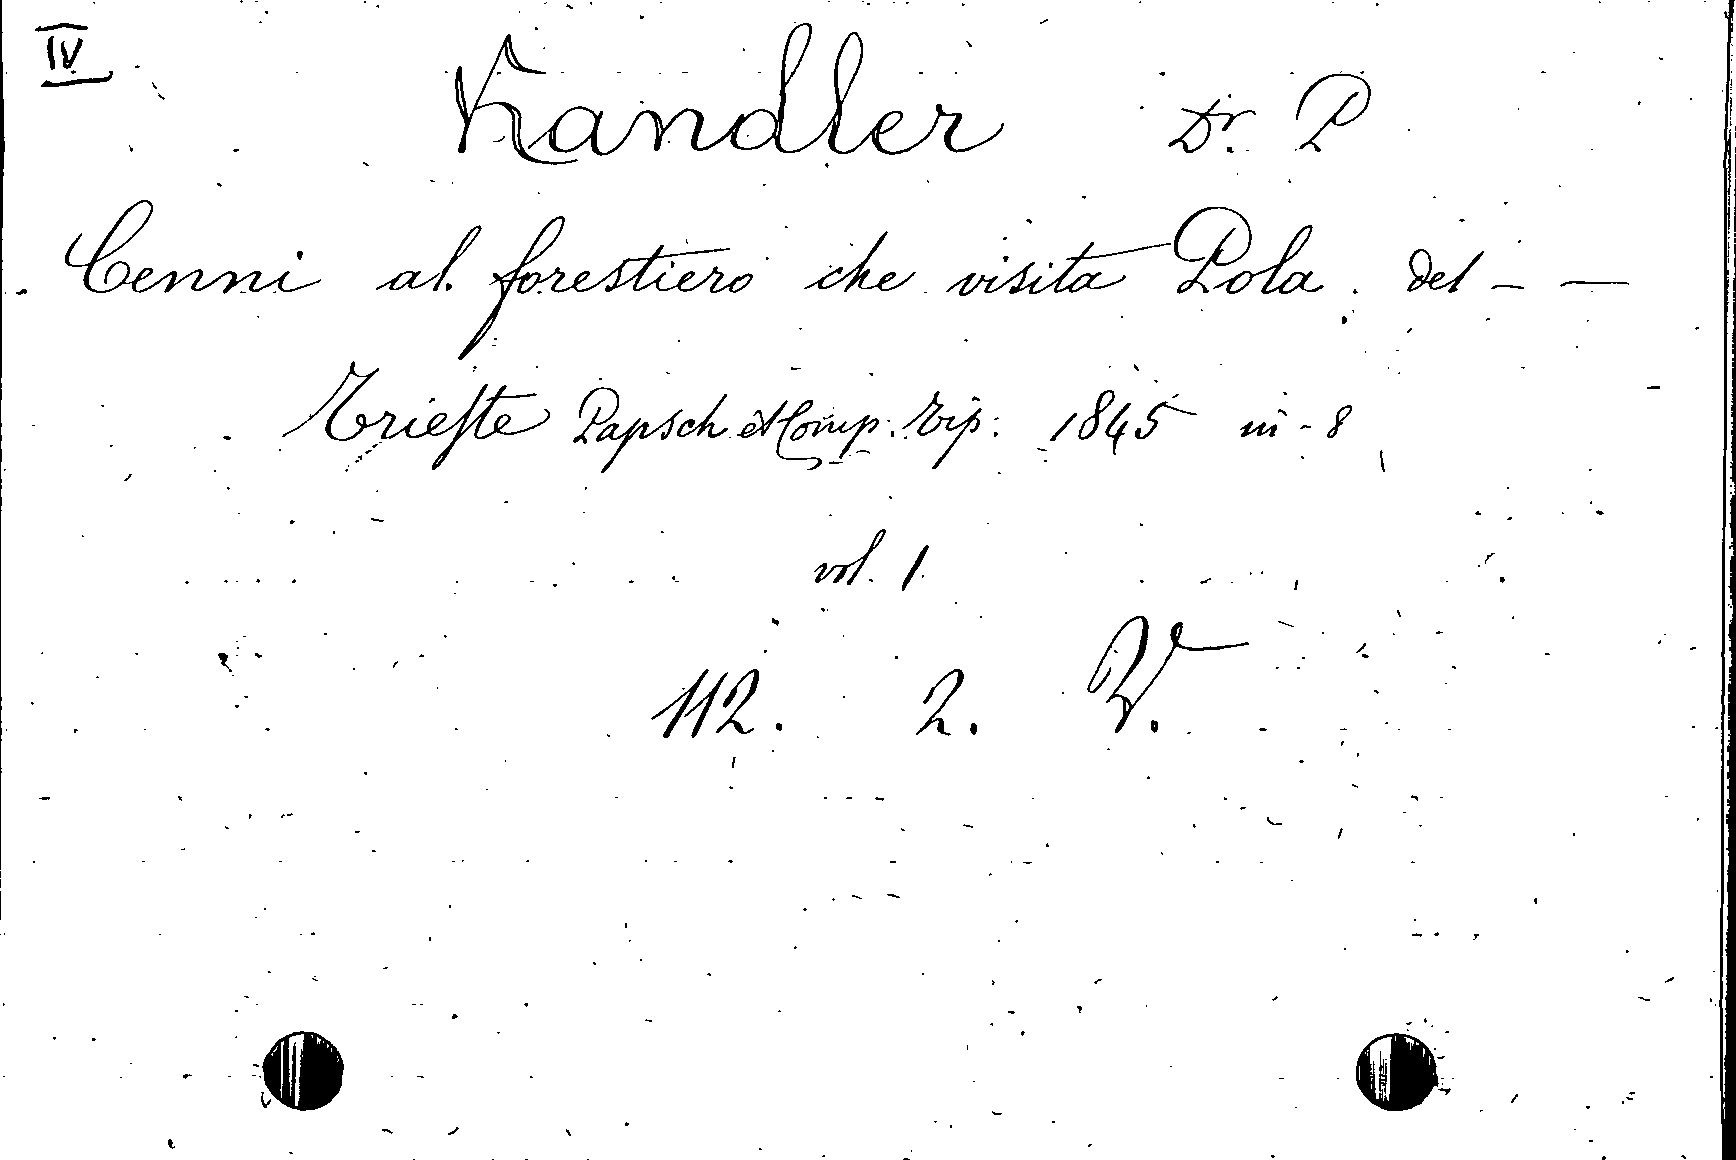 IV
Kandler Dr. P
Cenni al forestiero che visita Pola. del - —
Trieste Papsch et Comp. Tip. 1845 in-8
vol. 1
112. 2. V.